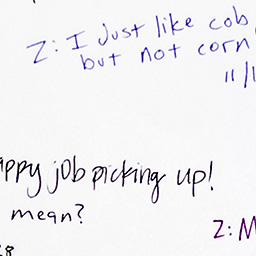 Z: I just like cob
but not corn
11/1
appy job picking up!
mean?
Z: M
28